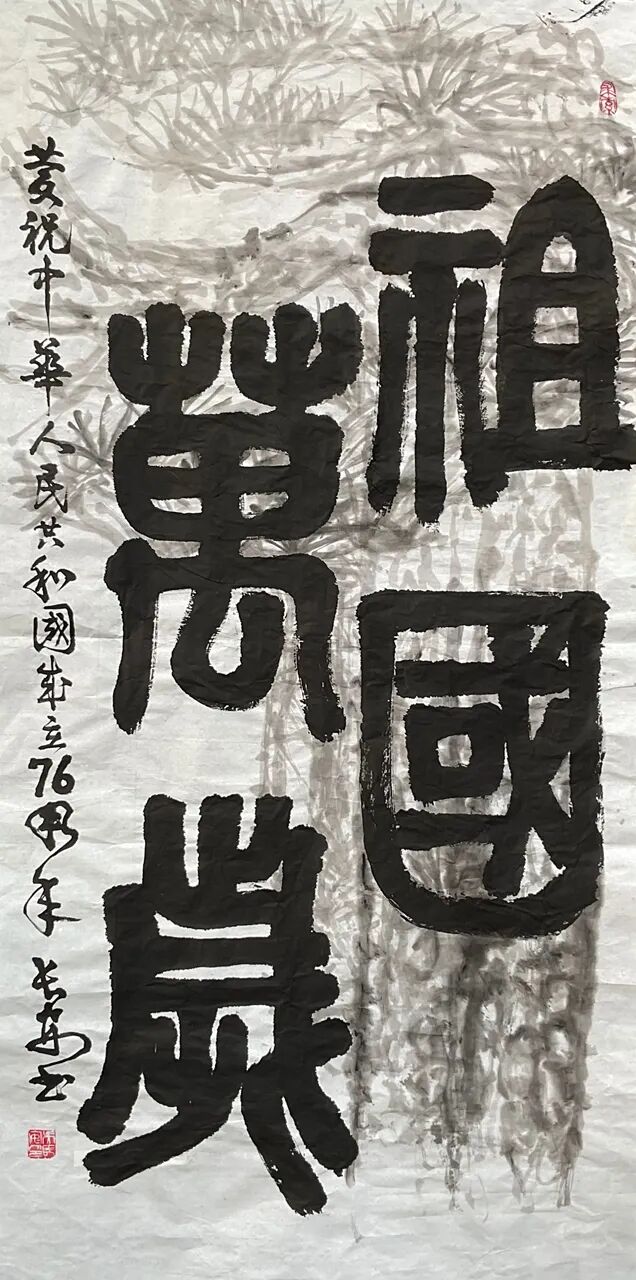 祖國
萬歲
慶祝中華人民共和國成立76周年 长安书